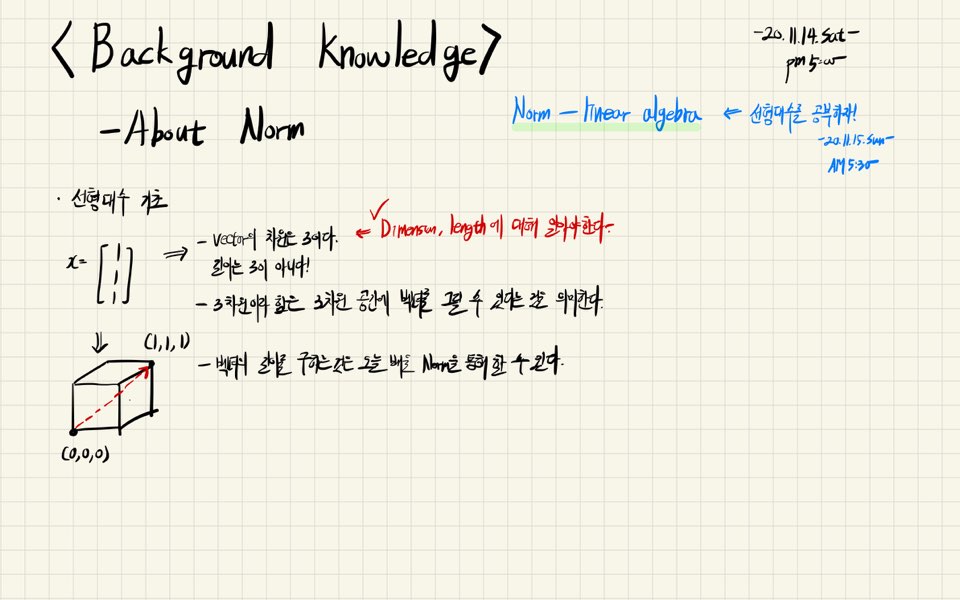 <Background Knowledge>
-20.11.14.Sat-
pm 5:00
- About Norm
Norm - linear algebra ⇐ 선형대수를 공부하자!
-20.11.15.Sun-
AM 5:30
· 선형대수 기초
x = [1 1 1] ⇒ - Vector의 차원은 3이다. ⇐ Dimension, length에 대해 알아야한다-
길이는 3이 아니다!
- 3차원이라 함은 3차원 공간에 벡터를 그릴 수 있다는 것을 의미한다.
⇓ (1,1,1)
- 벡터의 길이를 구하는 것은 오늘 배울 Norm을 통해 할 수 있다.
(0,0,0)